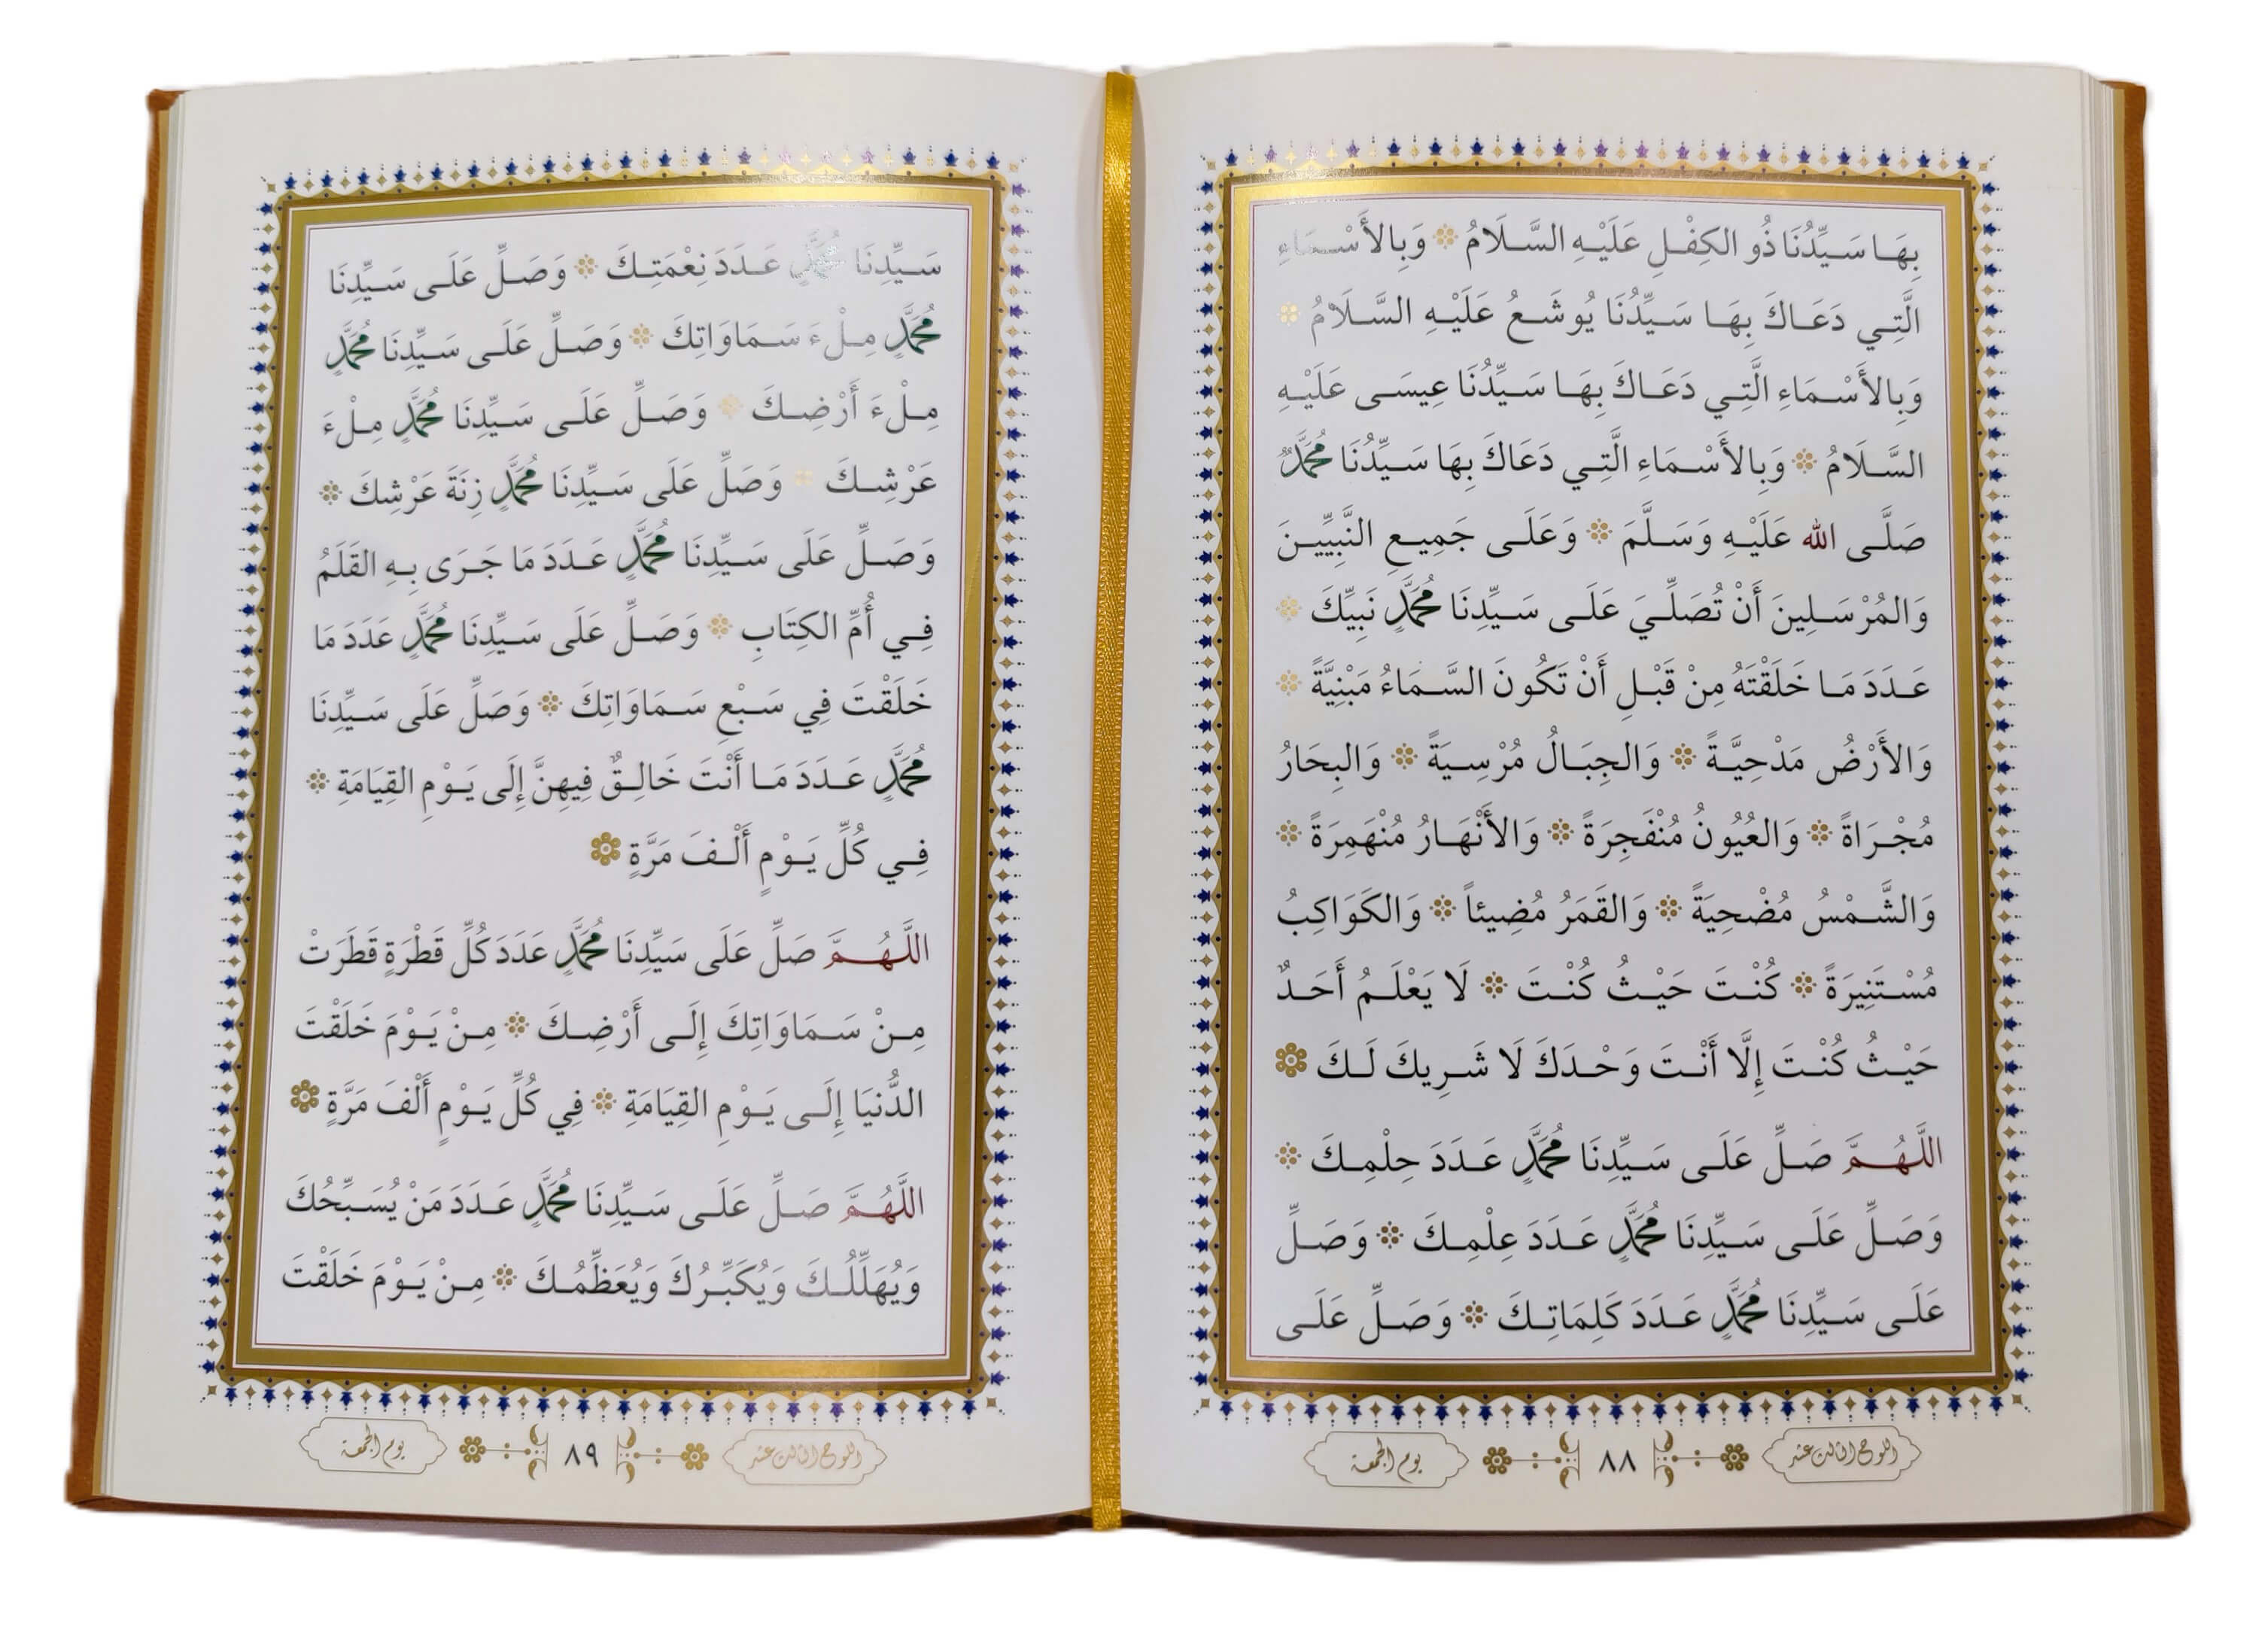 بِهَا سَيِّدُنَا ذُو الكِفْلِ عَلَيْهِ السَّلَامُ وَبِالأَسْمَاءِ
الَّتِي دَعَاكَ بِهَا سَيِّدُنَا يُوشَعُ عَلَيْهِ السَّلَامُ
وَبِالأَسْمَاءِ الَّتِي دَعَاكَ بِهَا سَيِّدُنَا عِيسَى عَلَيْهِ
السَّلَامُ وَبِالأَسْمَاءِ الَّتِي دَعَاكَ بِهَا سَيِّدُنَا مُحَمَّدٌ
صَلَّى الله عَلَيْهِ وَسَلَّمَ وَعَلَى جَمِيعِ النَّبِيِّينَ
وَالمُرْسَلِينَ أَنْ تُصَلِّيَ عَلَى سَيِّدِنَا مُحَمَّدٍ نَبِيِّكَ
عَدَدَ مَا خَلَقْتَهُ مِنْ قَبْلِ أَنْ تَكُونَ السَّمَاءُ مَبْنِيَّةً
وَالأَرْضُ مَدْحِيَّةً وَالجِبَالُ مُرْسِيَةً وَالبِحَارُ
مُجْرَاةً وَالعُيُونُ مُنْفَجِرَةً وَالأَنْهَارُ مُنْهَمِرَةً
وَالشَّمْسُ مُضْحِيَةً وَالقَمَرُ مُضِيئاً وَالكَوَاكِبُ
مُسْتَنِيرَةً كُنْتَ حَيْثُ كُنْتَ لَا يَعْلَمُ أَحَدٌ
حَيْثُ كُنْتَ إِلَّا أَنْتَ وَحْدَكَ لَا شَرِيكَ لَكَ
اللَّهُمَّ صَلِّ عَلَى سَيِّدِنَا مُحَمَّدٍ عَدَدَ حِلْمِكَ
وَصَلِّ عَلَى سَيِّدِنَا مُحَمَّدٍ عَدَدَ عِلْمِكَ وَصَلِّ
عَلَى سَيِّدِنَا مُحَمَّدٍ عَدَدَ كَلِمَاتِكَ وَصَلِّ عَلَى
اللوح الثالث عشر ٨٨ يوم الجمعة
سَيِّدِنَا مُحَمَّدٍ عَدَدَ نِعْمَتِكَ وَصَلِّ عَلَى سَيِّدِنَا
مُحَمَّدٍ مِلْءَ سَمَاوَاتِكَ وَصَلِّ عَلَى سَيِّدِنَا مُحَمَّدٍ
مِلْءَ أَرْضِكَ وَصَلِّ عَلَى سَيِّدِنَا مُحَمَّدٍ مِلْءَ
عَرْشِكَ وَصَلِّ عَلَى سَيِّدِنَا مُحَمَّدٍ زِنَةَ عَرْشِكَ
وَصَلِّ عَلَى سَيِّدِنَا مُحَمَّدٍ عَدَدَ مَا جَرَى بِهِ القَلَمُ
فِي أُمِّ الكِتَابِ وَصَلِّ عَلَى سَيِّدِنَا مُحَمَّدٍ عَدَدَ مَا
خَلَقْتَ فِي سَبْعِ سَمَاوَاتِكَ وَصَلِّ عَلَى سَيِّدِنَا
مُحَمَّدٍ عَدَدَ مَا أَنْتَ خَالِقٌ فِيهِنَّ إِلَى يَوْمِ القِيَامَةِ
فِي كُلِّ يَوْمٍ أَلْفَ مَرَّةٍ
اللَّهُمَّ صَلِّ عَلَى سَيِّدِنَا مُحَمَّدٍ عَدَدَ كُلِّ قَطْرَةٍ قَطَرَتْ
مِنْ سَمَاوَاتِكَ إِلَى أَرْضِكَ مِنْ يَوْمَ خَلَقْتَ
الدُّنيَا إِلَى يَوْمِ القِيَامَةِ فِي كُلِّ يَوْمٍ أَلْفَ مَرَّةٍ
اللَّهُمَّ صَلِّ عَلَى سَيِّدِنَا مُحَمَّدٍ عَدَدَ مَنْ يُسَبِّحُكَ
وَيُهَلِّلُكَ وَيُكَبِّرُكَ وَيُعَظِّمُكَ مِنْ يَوْمَ خَلَقْتَ
اللوح الثالث عشر ٨٩ يوم الجمعة